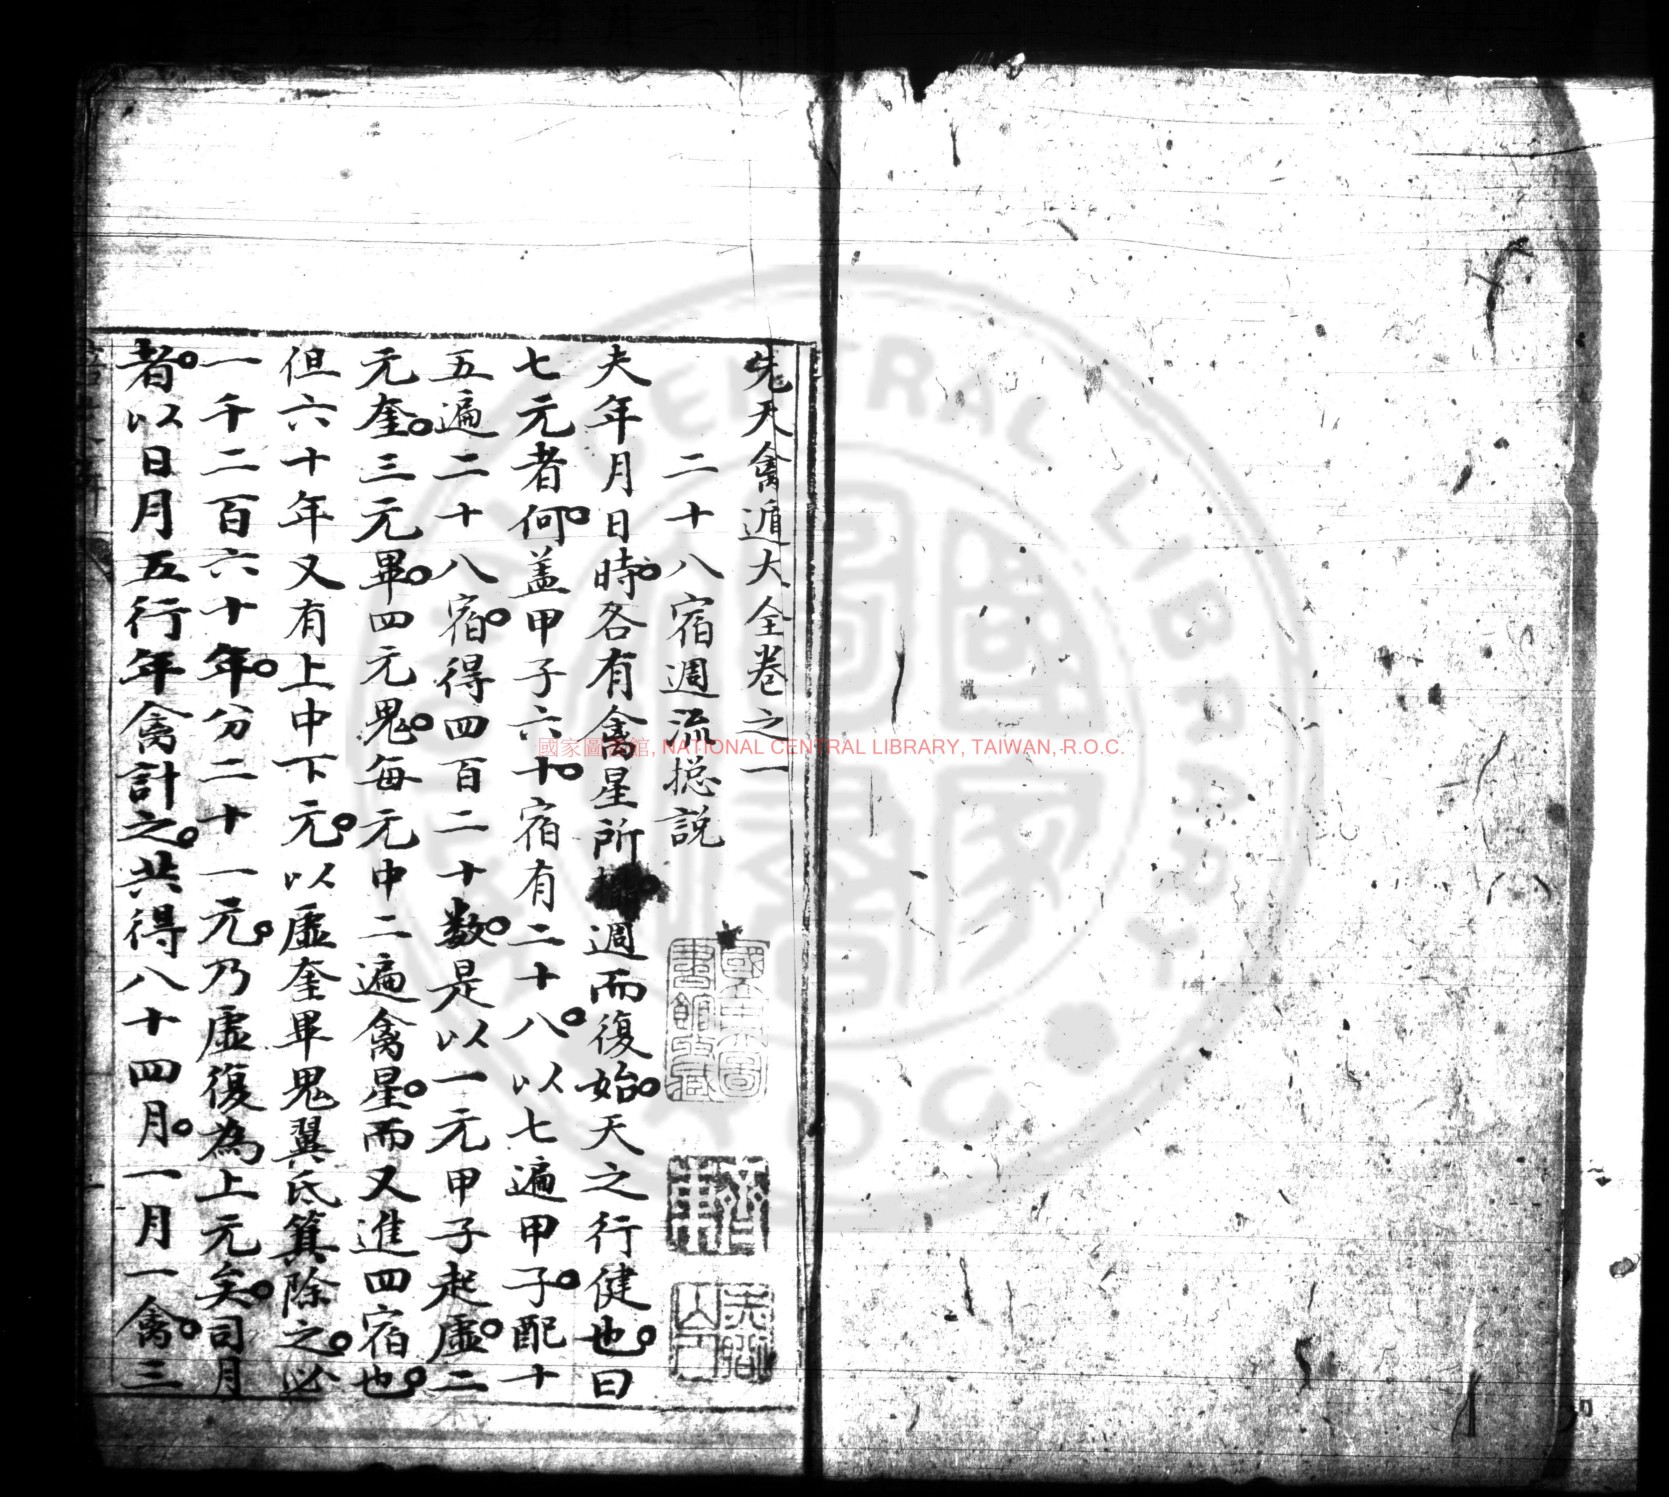 先天禽遁大全卷之一
二十八宿週流捴說
夫年月日時各有禽星所週而復始天之行健也曰
七元者何盖甲子六十宿有二十八以七遍甲子配十
五遍二十八宿得四百二十数是以一元甲子起虛二
元奎三元畢四元鬼每元中二遍禽星而又進四宿也
但六十年又有上中下元以虛奎畢鬼翼氐箕除之必
一千二百六十年分二十一元乃虛復為上元矣司月
者以日月五行年禽計之共得八十四月一月一禽三
國家圖書館, NATIONAL CENTRAL LIBRARY, TAIWAN, R.O.C.